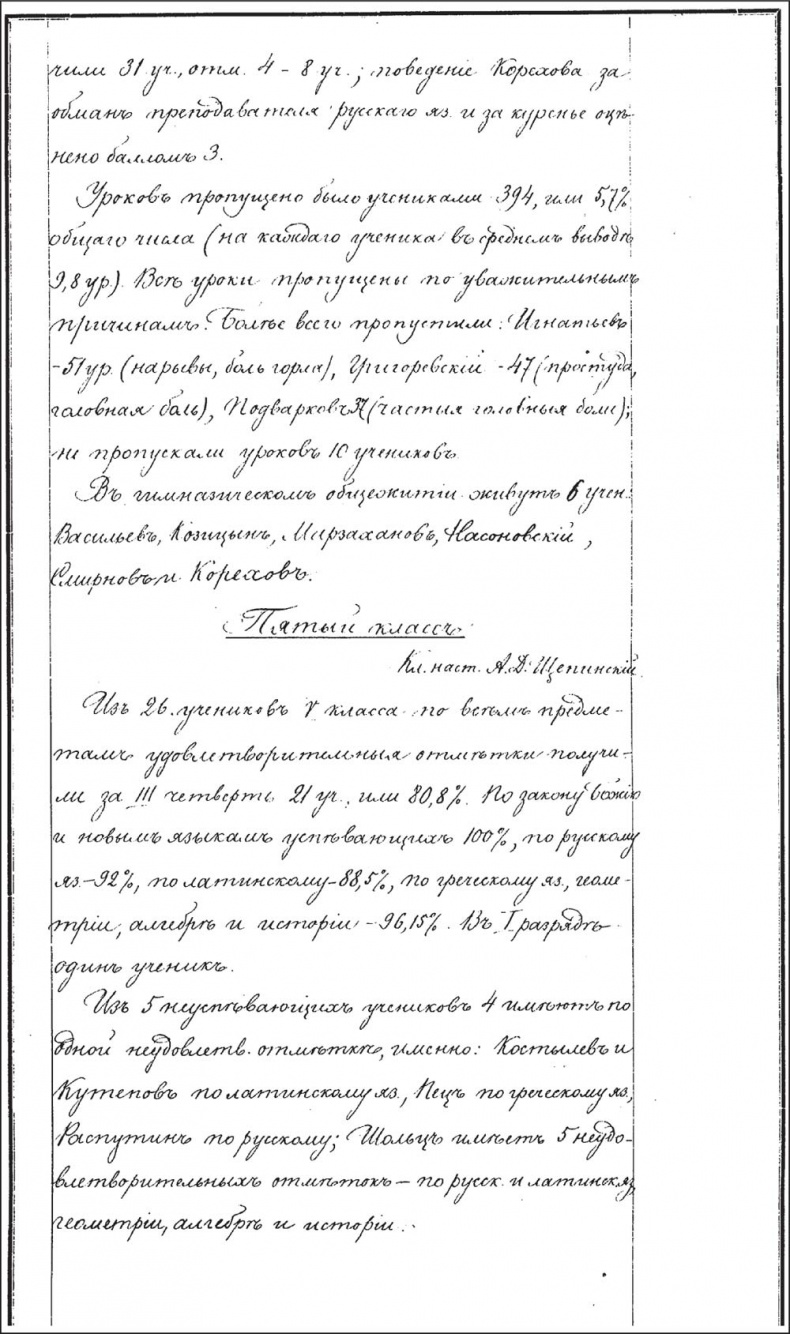 чили 31 уч., отм. 4 – 8 уч.; поведеніе Корехова за
обманъ преподавателя русскаго яз. и за куренье оцѣ-
нено балломъ 3.
Уроковъ пропущено было учениками 394, или 5,7%
общаго числа (на каждаго ученика въ среднемъ выводѣ
9,8 ур.). Всѣ уроки пропущены по уважительнымъ
причинамъ. Болѣе всего пропустили: Игнатьевъ
– 51 ур. (нарывы, боль горла), Григоревскій – 47 (простуда,
головная боль), Подварковъ 37 (частыя головныя боли);
не пропускали уроковъ 10 учениковъ.
Въ гимназическомъ общежитіи живутъ 6 учен.:
Васильевъ, Козицынъ, Мирзахановъ, Насоновскій,
Смирновъ и Кореховъ.
Пятый классъ
Кл. наст. А. Д. Щепинскій
Изъ 26 учениковъ V класса по всѣмъ предме-
тамъ удовлетворительныя отмѣтки получи-
ли за III четверть 21 уч., или 80,8%. По закону Божію
и новымъ языкамъ успѣвающихъ 100%, по русскому
яз. – 92%, по латинскому – 88,5%, по греческому яз., геоме-
тріи, алгебрѣ и исторіи – 96,15%. Въ I разрядѣ
одинъ ученикъ.
Изъ 5 неуспѣвающихъ учениковъ 4 имѣютъ по
одной неудовлетв. отмѣткѣ, именно: Костылевъ и
Кутеповъ по латинскому яз., Пецъ по греческому яз.,
Распутинъ по русскому; Шольцъ имѣетъ 5 неудо-
влетворительныхъ отмѣтокъ – по русск. и латинск. яз.,
геометріи, алгебрѣ и исторіи.